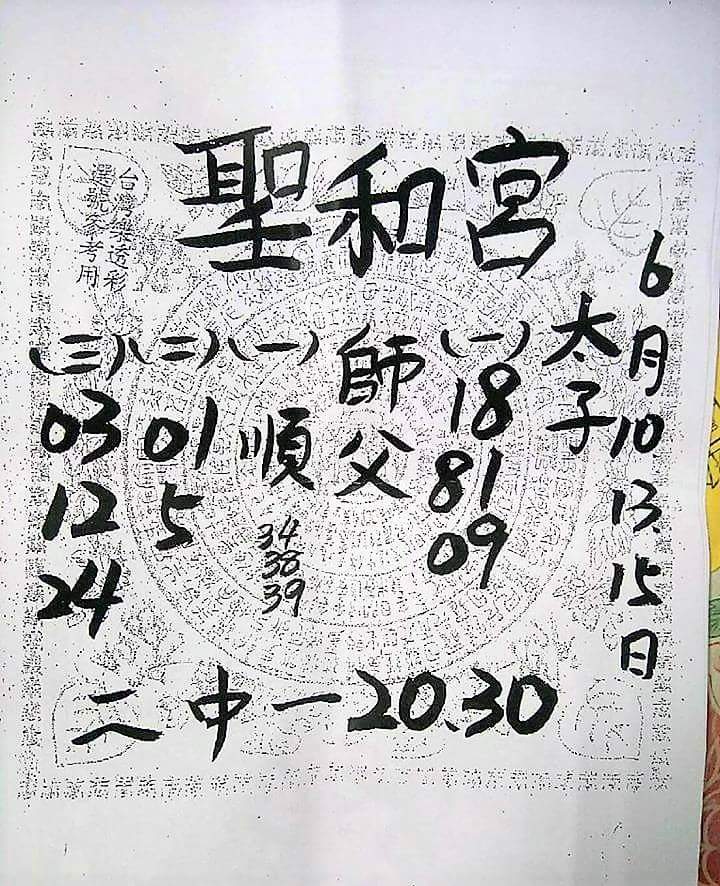 聖和宮
台灣樂透彩
選號參考用
6月10.13.15日
太子
(一)
18
81
09
師父
(一)
順
34
38
39
(二)
01
5
(三)
03
12
24
二中一20.30